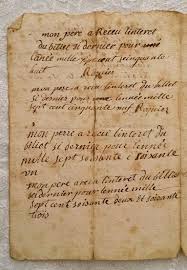 mon pere a Receu linteret
du billet si dernier pour
lanee mille sept cent sinquante
huit Rapier
mon pere a receu linteret du billet
si dernier pour lannee mille
sept cent cinquante neuf Rapier
mon pere a recu linteret du
billet si dernier pour linnee
mille sept soixante e soixante
un
mon pere a recu linteret du billet
si dernier pour lennie mille
sept cent soixante deux et soixante
trois